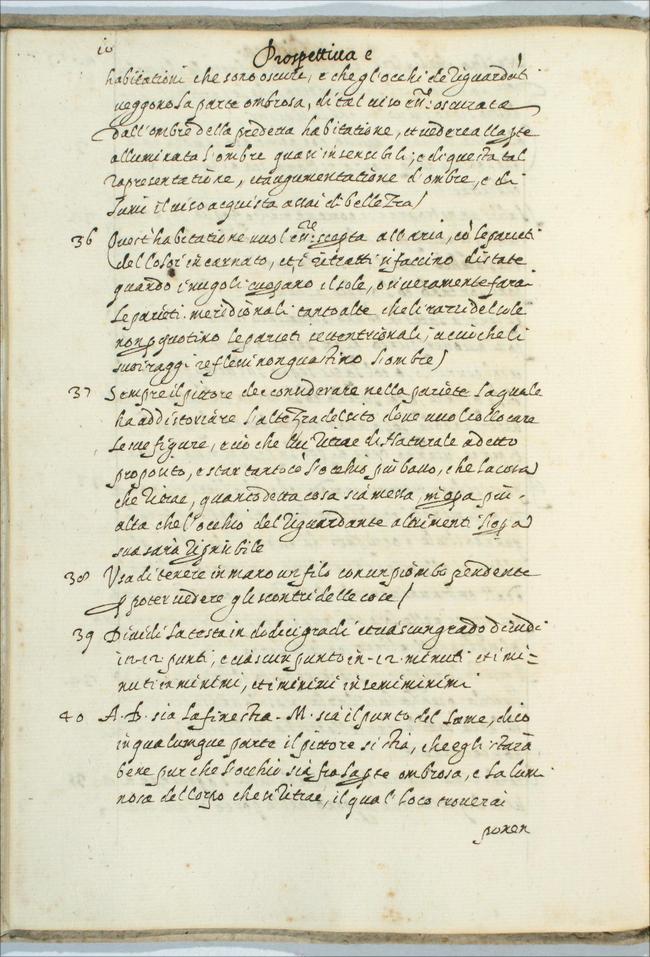 10
Prospettiua e
habitationi che sono oscure, e che gl'occhi de riguardati
ueggono la parte ombrosa, di tal uiso oscurata
dall'ombre della predetta habitatione, et uedere alla pte
alluminata l'ombre quasi insensibili; e di questa tal
rapresentatione, et augumentatione d'ombre, e di
lumi il uiso acquista assai di bellezza /
36 Quest'habitatione uuol scopta all'aria, cō le parieti
del color' incarnato, et i ritratti si faccino di state
quando i nugoli cuopano il sole, o si ueramente farai
le parieti meridionali tanto alte che li razzi del sole
non pquotino le parieti settentrionali; accioche li
suoi raggi reflessi non guastino l'ombre /
37 Sempre il pittore dee considerare nella pariete la quale
ha ad distoriare l'altezza del sito doue uuol collocare
le sue figure, e ciò che lui ritrae di Naturale a detto
proposito, e star tanto cō l'occhio piu basso, che la cosa
che ritrae, quanto detta cosa sia messa, in opa piu
alta che l'occhio del riguardante altrimenti l'opa
sua sarà ripnsibile
38 Usa di tenere in mano un filo con un piombo pendente
p poter uedere gli scontri delle cose /
39 Diuidi la testa in dodici gradi et ciascun grado diuidi
in-12 punti, e ciascun punto in-12 minuti et i mi=
nuti in minimi, et i minimi in semiminimi
40 A. B. sia la finestra - M. sia il punto del lume, dico
in qualumque parte il pittore si stia, che egli starà
bene pur che l'occhio sia fra la pte ombrosa, e la lumi
nosa del corpo che si ritrae, il qual' loco trouerai
ponen